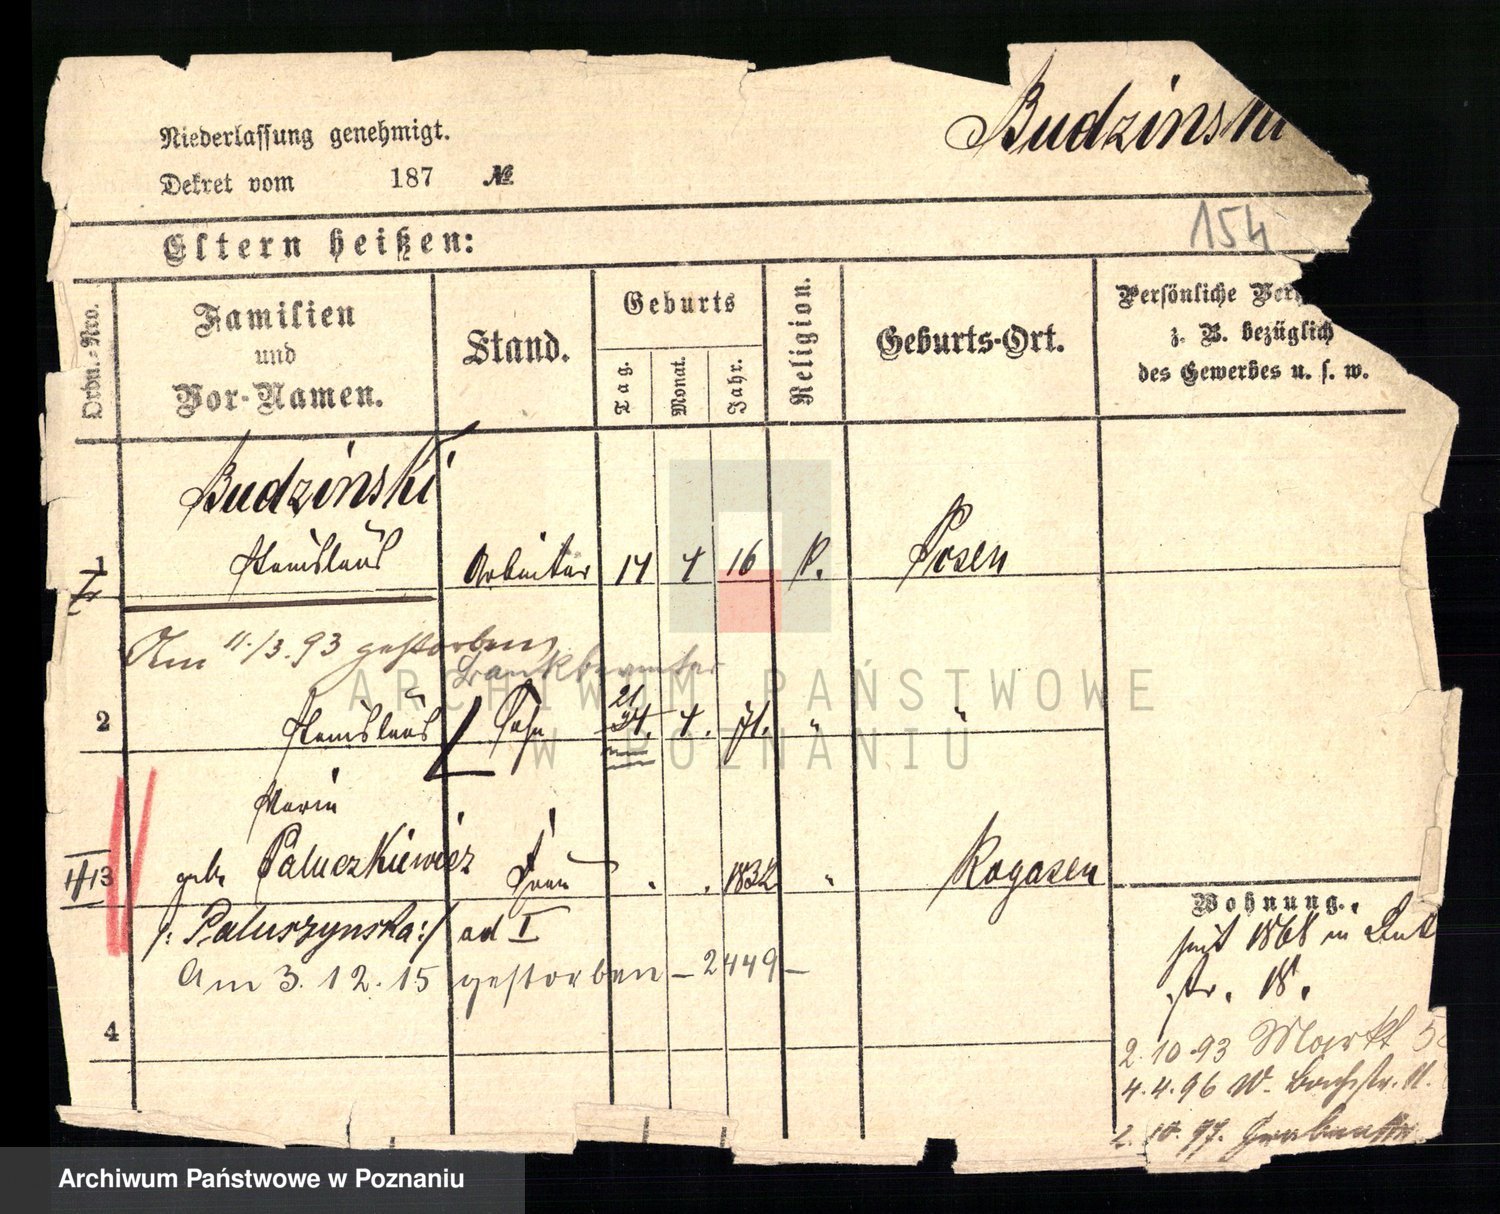 Budzinski
Niederlassung genehmigt.
Dekret vom 187 №
154
Eltern heißen:
Ordn.-Nro.
Familien
und
Vor-Namen.
Stand.
Geburts
Tag.
Monat.
Jahr.
Religion.
Geburts-Ort.
Persönliche
z. B. bezüglich
des Gewerbes u. s. w.
Budzinski
1 Stanislaus Arbeiter 14 4 16 R. Posen
Am 11./3.93 gestorben
Bankbeamter
21
2 Stanislaus Sohn 24. 4. 71. " "
Maria
13 geb. Paluczkiewicz Frau " " 1832 " Rogasen
/: Paluszynska :/ ad I
Am 3.12.15 gestorben – 2449 –
4
Wohnung.
seit 1868 in
str. 18.
2.10.93 Markt
4.4.96 W. Bachstr. 11.
2.10.97.
ARCHIWUM PAŃSTWOWE
W POZNANIU
Archiwum Państwowe w Poznaniu